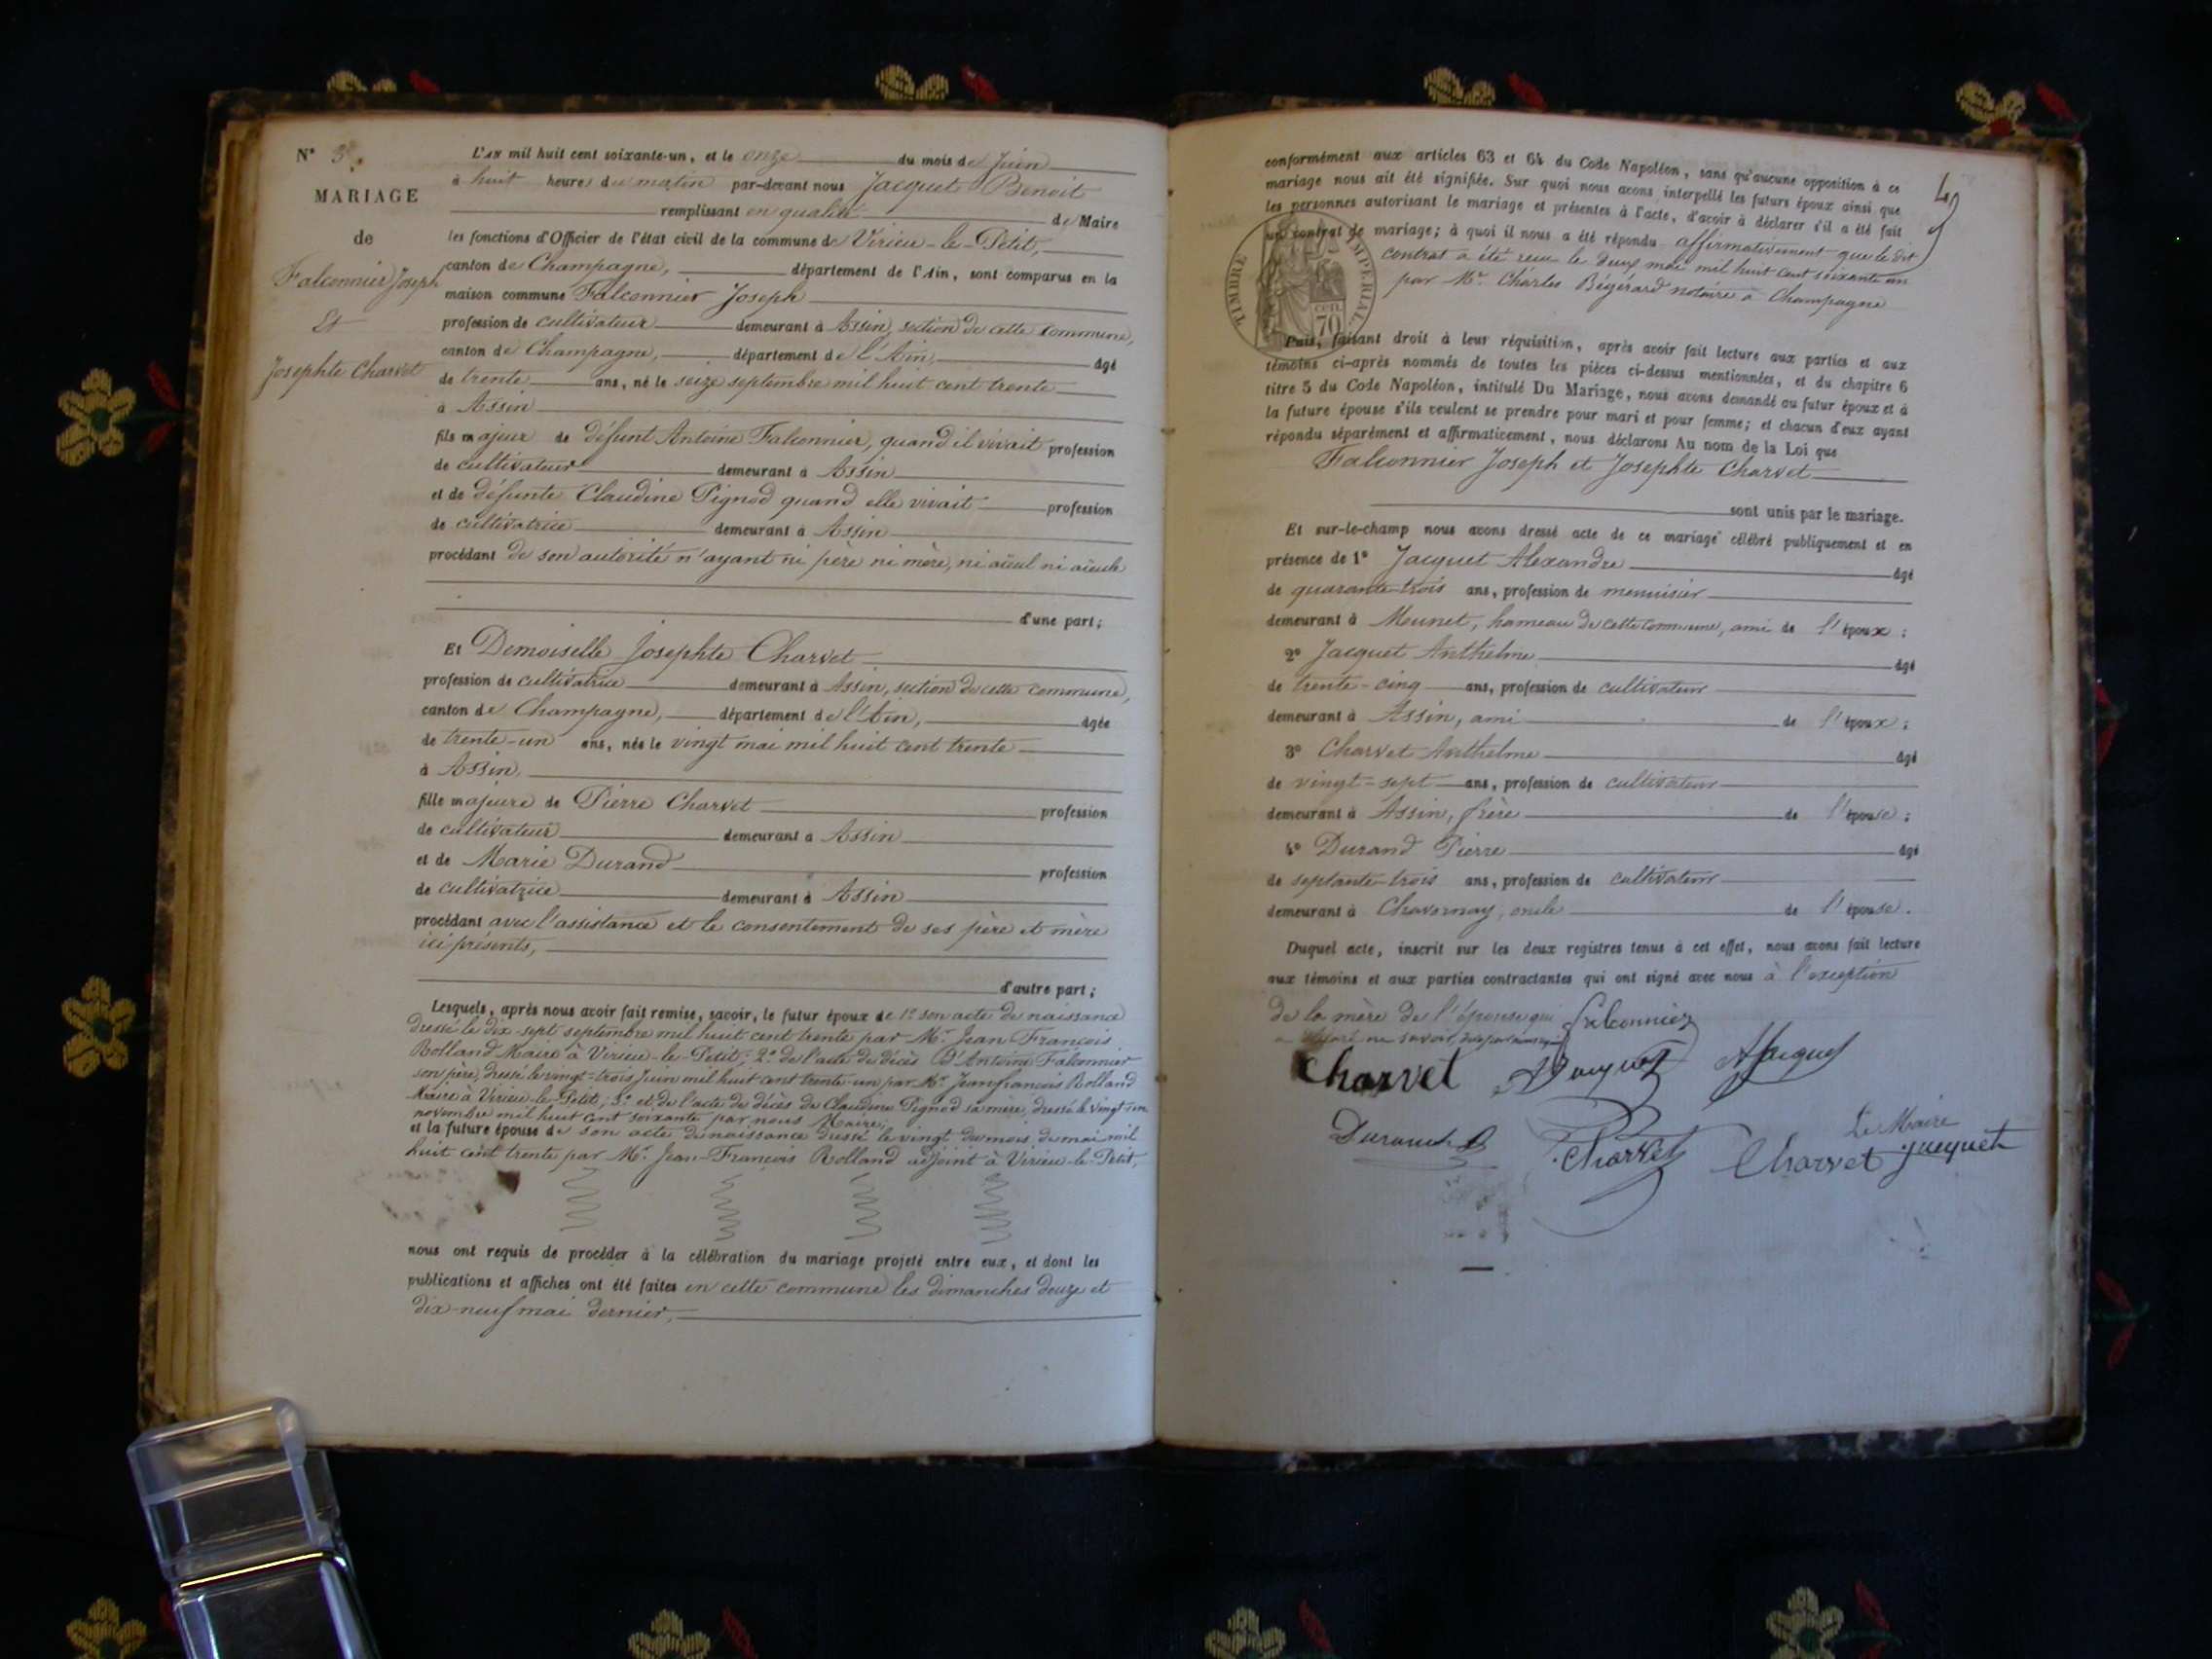 N° 3.
MARIAGE
de
Falconnier Joseph
Et
Josephte Charvet
L'AN mil huit cent soixante-un, et le onze du mois de Juin
à huit heures du matin par-devant nous Jacquet Benoit
remplissant en qualité de Maire
les fonctions d'Officier de l'état civil de la commune de Virieu-le-Petit,
canton de Champagne, département de l'Ain, sont comparus en la
maison commune Falconnier Joseph
profession de cultivateur demeurant à Assin, section de cette commune,
canton de Champagne, département de l'Ain, âgé
de trente ans, né le seize septembre mil huit cent trente
à Assin
fils majeur de défunt Antoine Falconnier, quand il vivait profession
de cultivateur demeurant à Assin
et de défunte Claudine Pignod quand elle vivait profession
de cultivatrice demeurant à Assin
procédant de son autorité n'ayant ni père ni mère, ni aïeul ni aïeule
d'une part;
Et Demoiselle Josephte Charvet
profession de cultivatrice demeurant à Assin, section de cette commune,
canton de Champagne, département de l'Ain, âgée
de trente-un ans, née le vingt mai mil huit cent trente
à Assin,
fille majeure de Pierre Charvet profession
de cultivateur demeurant à Assin
et de Marie Durand profession
de cultivatrice demeurant à Assin
procédant avec l'assistance et le consentement de ses père et mère
ici présents,
d'autre part;
Lesquels, après nous avoir fait remise, savoir, le futur époux de 1° son acte de naissance
dressé le dix-sept septembre mil huit cent trente par Mr. Jean-François
Rolland Maire à Virieu-le-Petit; 2° de l'acte de décès d'Antoine Falconnier
son père, dressé le vingt-trois Juin mil huit cent trente-un par Mr. Jean françois Rolland
Maire à Virieu-le-Petit; 3° et de l'acte de décès de Claudine Pignod sa mère, dressé le vingt-un
novembre mil huit cent soixante par nous Maire,
et la future épouse de son acte de naissance dressé le vingt du mois de mai mil
huit cent trente par Mr. Jean-François Rolland adjoint à Virieu-le-Petit,
nous ont requis de procéder à la célébration du mariage projeté entre eux, et dont les
publications et affiches ont été faites en cette commune les dimanches douze et
dix-neuf mai dernier,
conformément aux articles 63 et 64 du Code Napoléon, sans qu'aucune opposition à ce
mariage nous ait été signifiée. Sur quoi nous avons interpellé les futurs époux ainsi que
les personnes autorisant le mariage et présentes à l'acte, d'avoir à déclarer s'il a été fait
un contrat de mariage; à quoi il nous a été répondu affirmativement que le dit
contrat a été reçu le deux mai mil huit cent soixante un
par Mr. Charles Bégérard notaire à Champagne
TIMBRE IMPERIAL
70
Puis, faisant droit à leur réquisition, après avoir fait lecture aux parties et aux
témoins ci-après nommés de toutes les pièces ci-dessus mentionnées, et du chapitre 6
titre 5 du Code Napoléon, intitulé Du Mariage, nous avons demandé au futur époux et à
la future épouse s'ils veulent se prendre pour mari et pour femme; et chacun d'eux ayant
répondu séparément et affirmativement, nous déclarons Au nom de la Loi que
Falconnier Joseph et Josephte Charvet
sont unis par le mariage.
Et sur-le-champ nous avons dressé acte de ce mariage célébré publiquement et en
présence de 1° Jacquet Alexandre âgé
de quarante-trois ans, profession de menuisier
demeurant à Munet, hameau de cette commune, ami de l'époux;
2° Jacquet Anthelme âgé
de trente-cinq ans, profession de cultivateur
demeurant à Assin, ami de l'époux;
3° Charvet Anthelme âgé
de vingt-sept ans, profession de cultivateur
demeurant à Assin, frère de l'épouse;
4° Durand Pierre âgé
de septante-trois ans, profession de cultivateur
demeurant à Chavornay, oncle de l'épouse.
Duquel acte, inscrit sur les deux registres tenus à cet effet, nous avons fait lecture
aux témoins et aux parties contractantes qui ont signé avec nous à l'exception
de la mère de l'épouse qui falconnier
a déclaré ne savoir
Charvet Jacquet AJacquet
Durand Charvet Charvet Le Maire
Jacquet